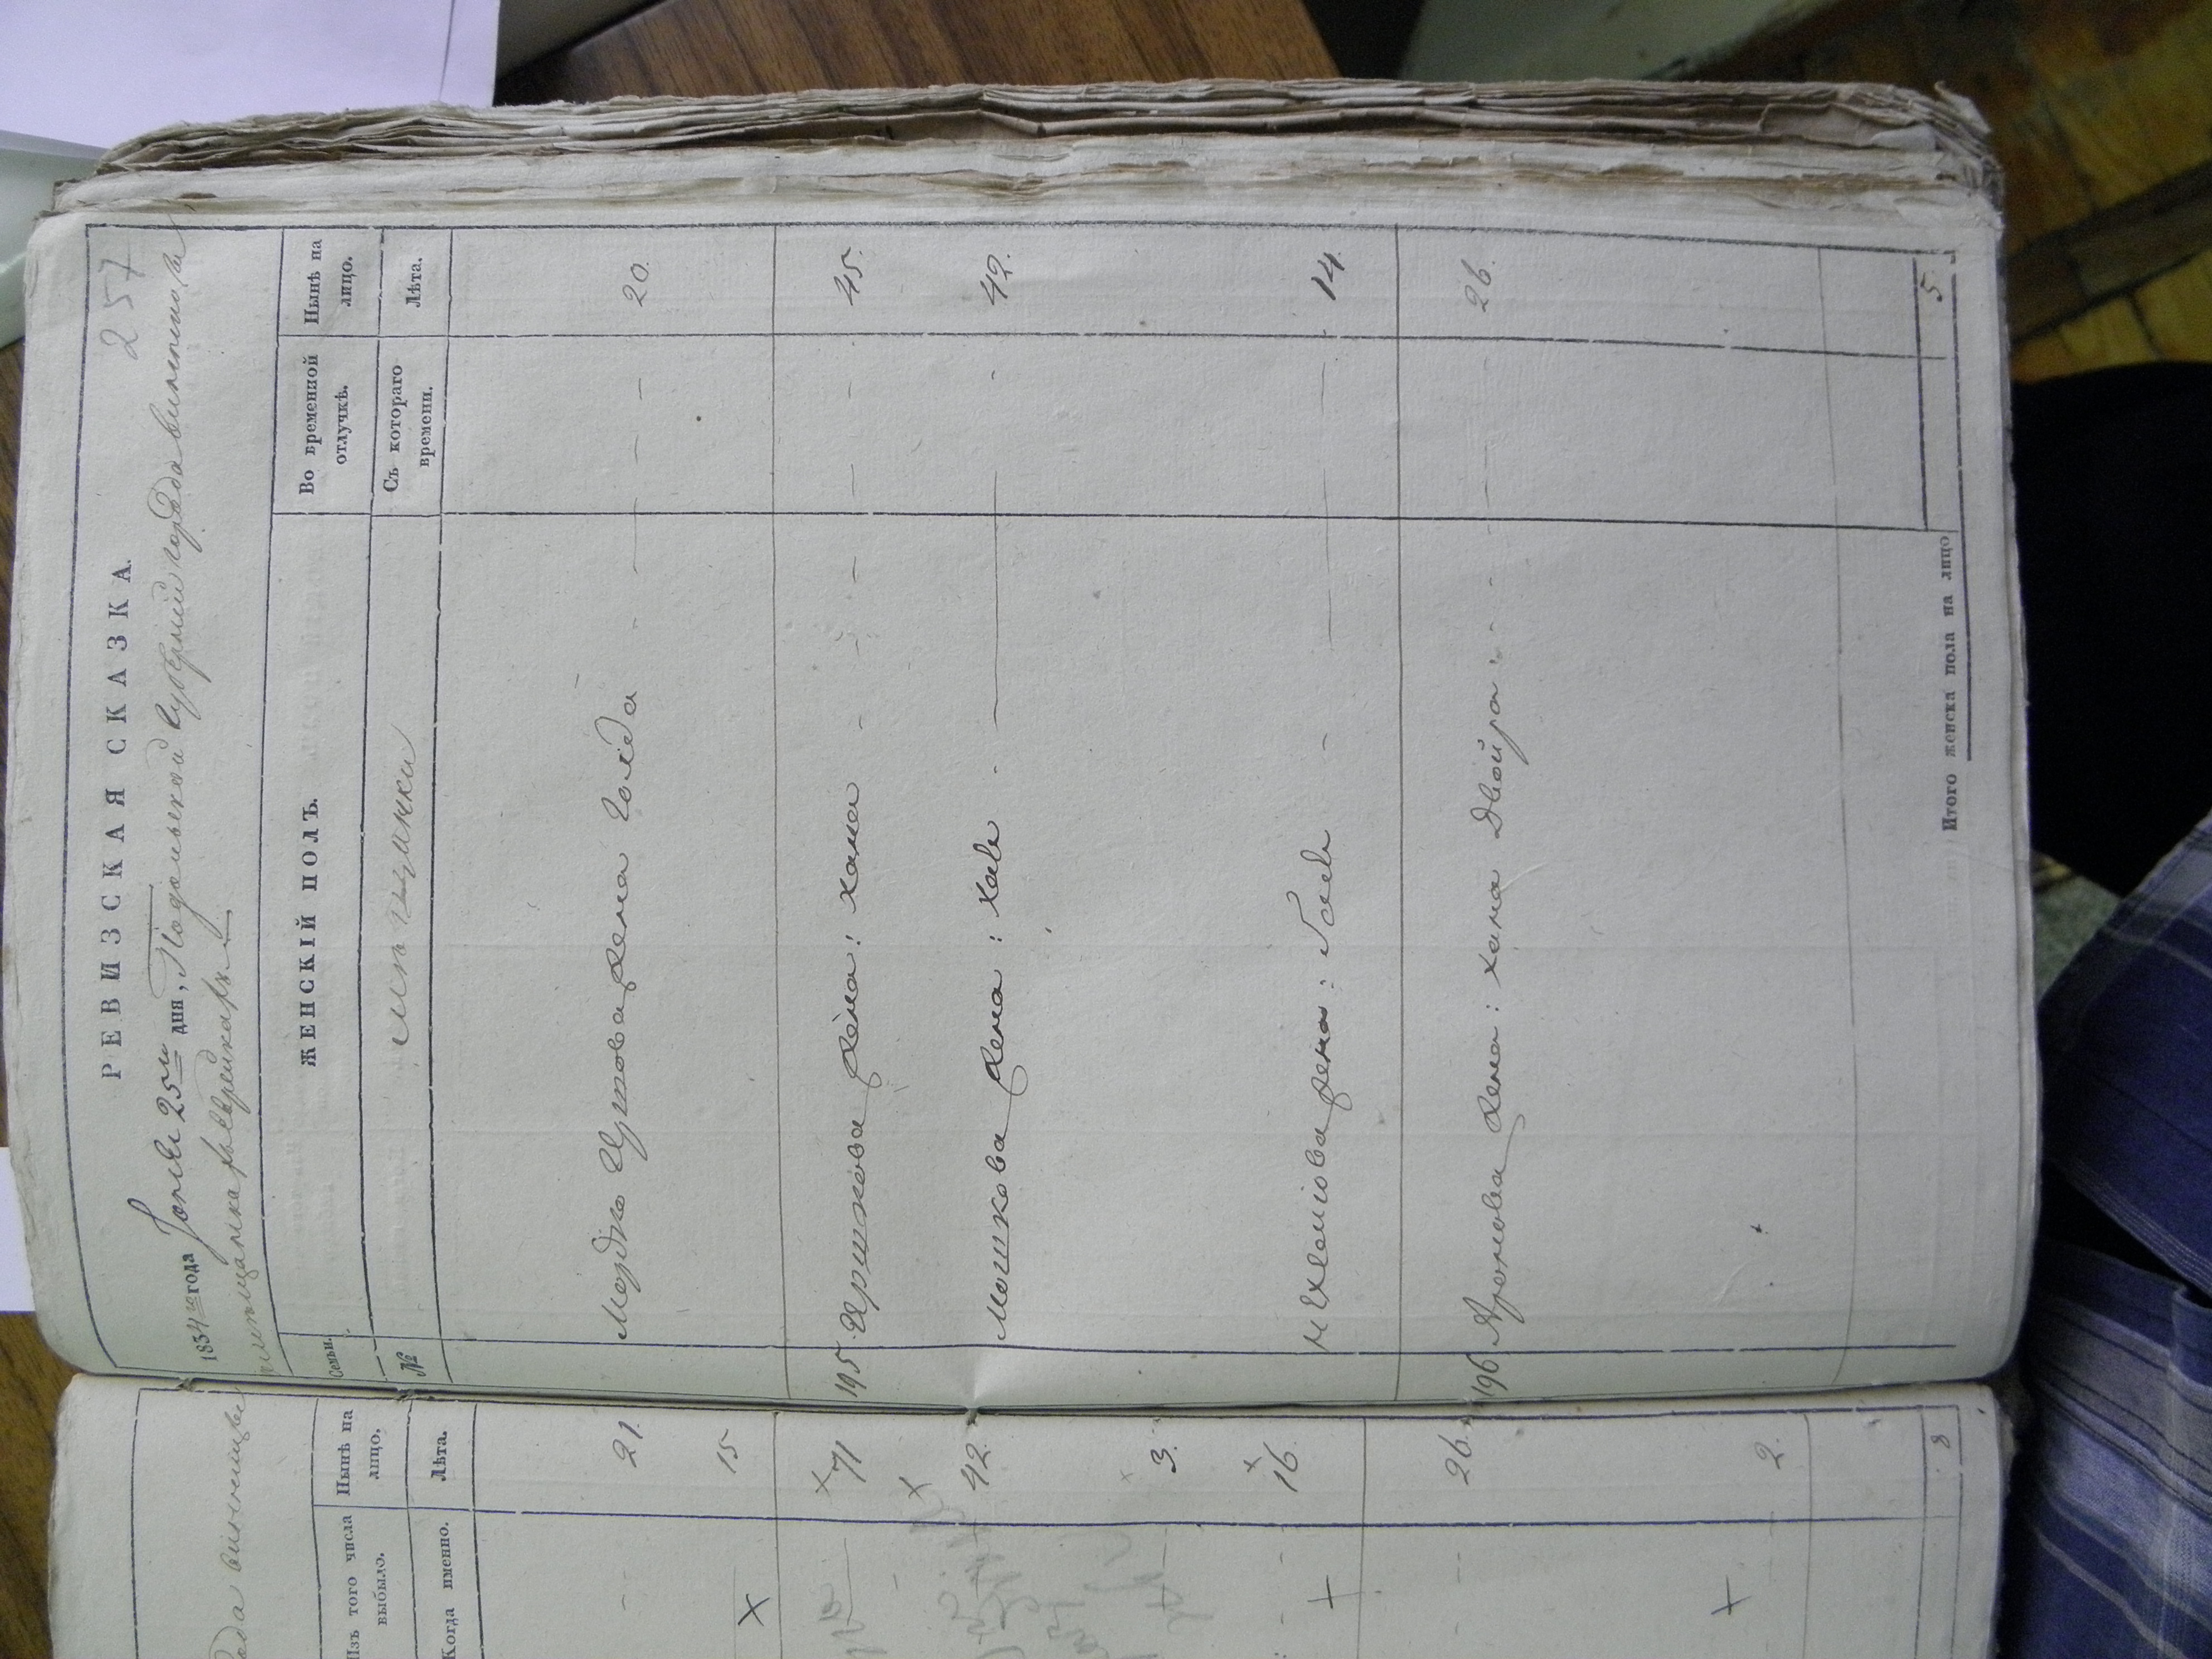 257
РЕВИЗСКАЯ СКАЗКА.
1834го года Іюня 25го дня, Подольской Губерніи города Винницы
мѣщанъ евреяхъ
Семьи.
ЖЕНСКІЙ ПОЛЪ.
Во временной отлучкѣ.
Нынѣ на лицо.
№
мѣщанки
Съ котораго времени.
Лѣта.
Мордко жена Голда 20.
195 Иршкова жена: Хана 45.
Мошкова жена: Хаве 42.
жена: 14.
196 Ароновая жена: Хана Двойра 26.
Итого женска пола на лицо 5.
города
Изъ того числа выбыло.
Нынѣ на лицо.
Когда именно.
Лѣта.
21.
15
71
42.
3.
16.
26.
2.
8